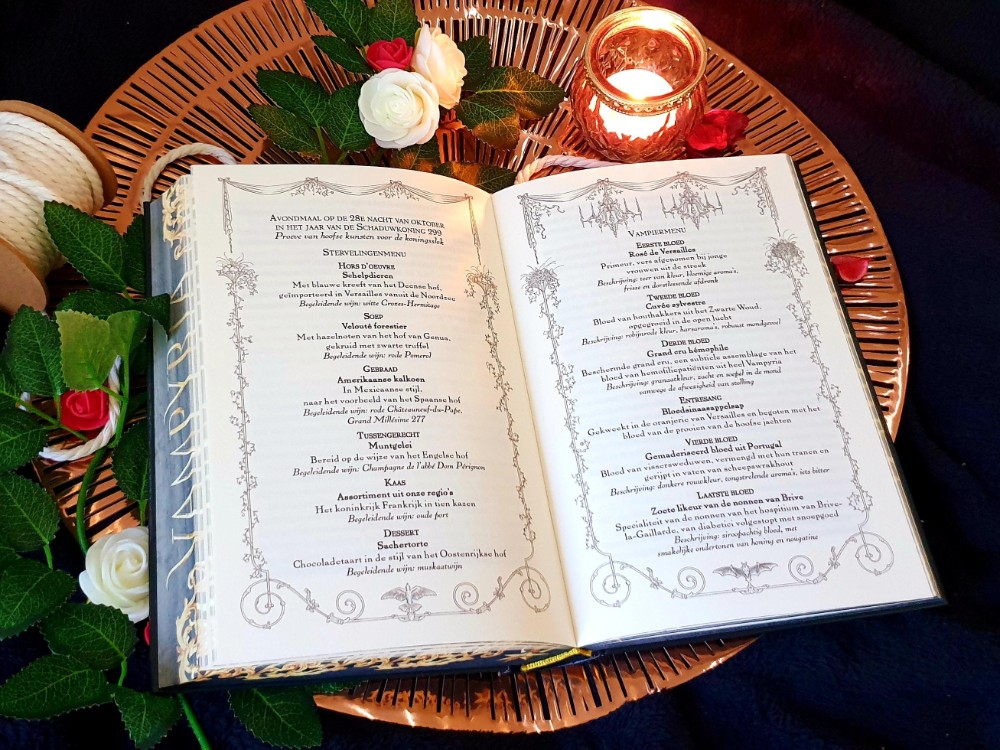 VAMPYRIA
Avondmaal op de 28e nacht van oktober
in het jaar van de Schaduwkoning 299
Proeve van hoofse kunsten voor de koningsslok
Stervelingenmenu
Hors d'oeuvre
Schelpdieren
Met blauwe kreeft van het Deense hof,
geïmporteerd in Versailles vanuit de Noordzee
Begeleidende wijn: witte Crozes-Hermitage
Soep
Velouté forestier
Met hazelnoten van het hof van Genua,
gekruid met zwarte truffel
Begeleidende wijn: rode Pomerol
Gebraad
Amerikaanse kalkoen
In Mexicaanse stijl,
naar het voorbeeld van het Spaanse hof
Begeleidende wijn: rode Châteauneuf-du-Pape,
Grand Millésime 277
Tussengerecht
Muntgelei
Bereid op de wijze van het Engelse hof
Begeleidende wijn: Champagne de l'abbé Dom Pérignon
Kaas
Assortiment uit onze regio's
Het koninkrijk Frankrijk in tien kazen
Begeleidende wijn: oude port
Dessert
Sachertorte
Chocoladetaart in de stijl van het Oostenrijkse hof
Begeleidende wijn: muskaatwijn
Vampiermenu
Eerste bloed
Rosé de Versailles
Primeur, vers afgenomen bij jonge
vrouwen uit de streek
Beschrijving: teer van kleur, bloemige aroma's,
frisse en dorstlessende afdronk
Tweede bloed
Cuvée sylvestre
Bloed van houthakkers uit het Zwarte Woud,
opgegroeid in de open lucht
Beschrijving: robijnrode kleur, harsaroma's, robuust mondgevoel
Derde bloed
Grand cru hémophile
Beschermde grand cru, een subtiele assemblage van het
bloed van hemofiliepatiënten uit heel Vampyria
Beschrijving: granaatkleur, zacht en soepel in de mond
vanwege de afwezigheid van stolling
Entresang
Bloedsinaasappelsap
Gekweekt in de oranjerie van Versailles en begoten met het
bloed van de prooien van de hoofse jachten
Vierde bloed
Gemaderiseerd bloed uit Portugal
Bloed van vissersweduwen, vermengd met hun tranen en
gerijpt in vaten van scheepswrakhout
Beschrijving: donkere rouwkleur, tongstrelende aroma's, iets bitter
Laatste bloed
Zoete likeur van de nonnen van Brive
Specialiteit van de nonnen van het hospitium van Brive-
la-Gaillarde, van diabetici volgestopt met snoepgoed
Beschrijving: siroopachtig bloed, met
smakelijke ondertonen van honing en nougatine